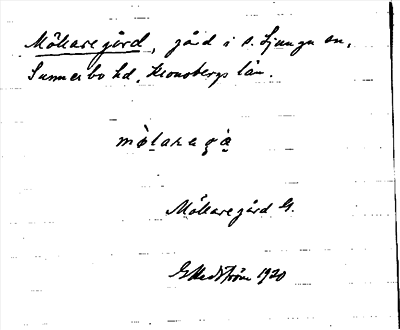 Mökaregård, gård i s. Ljunga sn,
Sunnerbo hd, Kronobergs län.
Mökaregård G.
G Hedström 1920